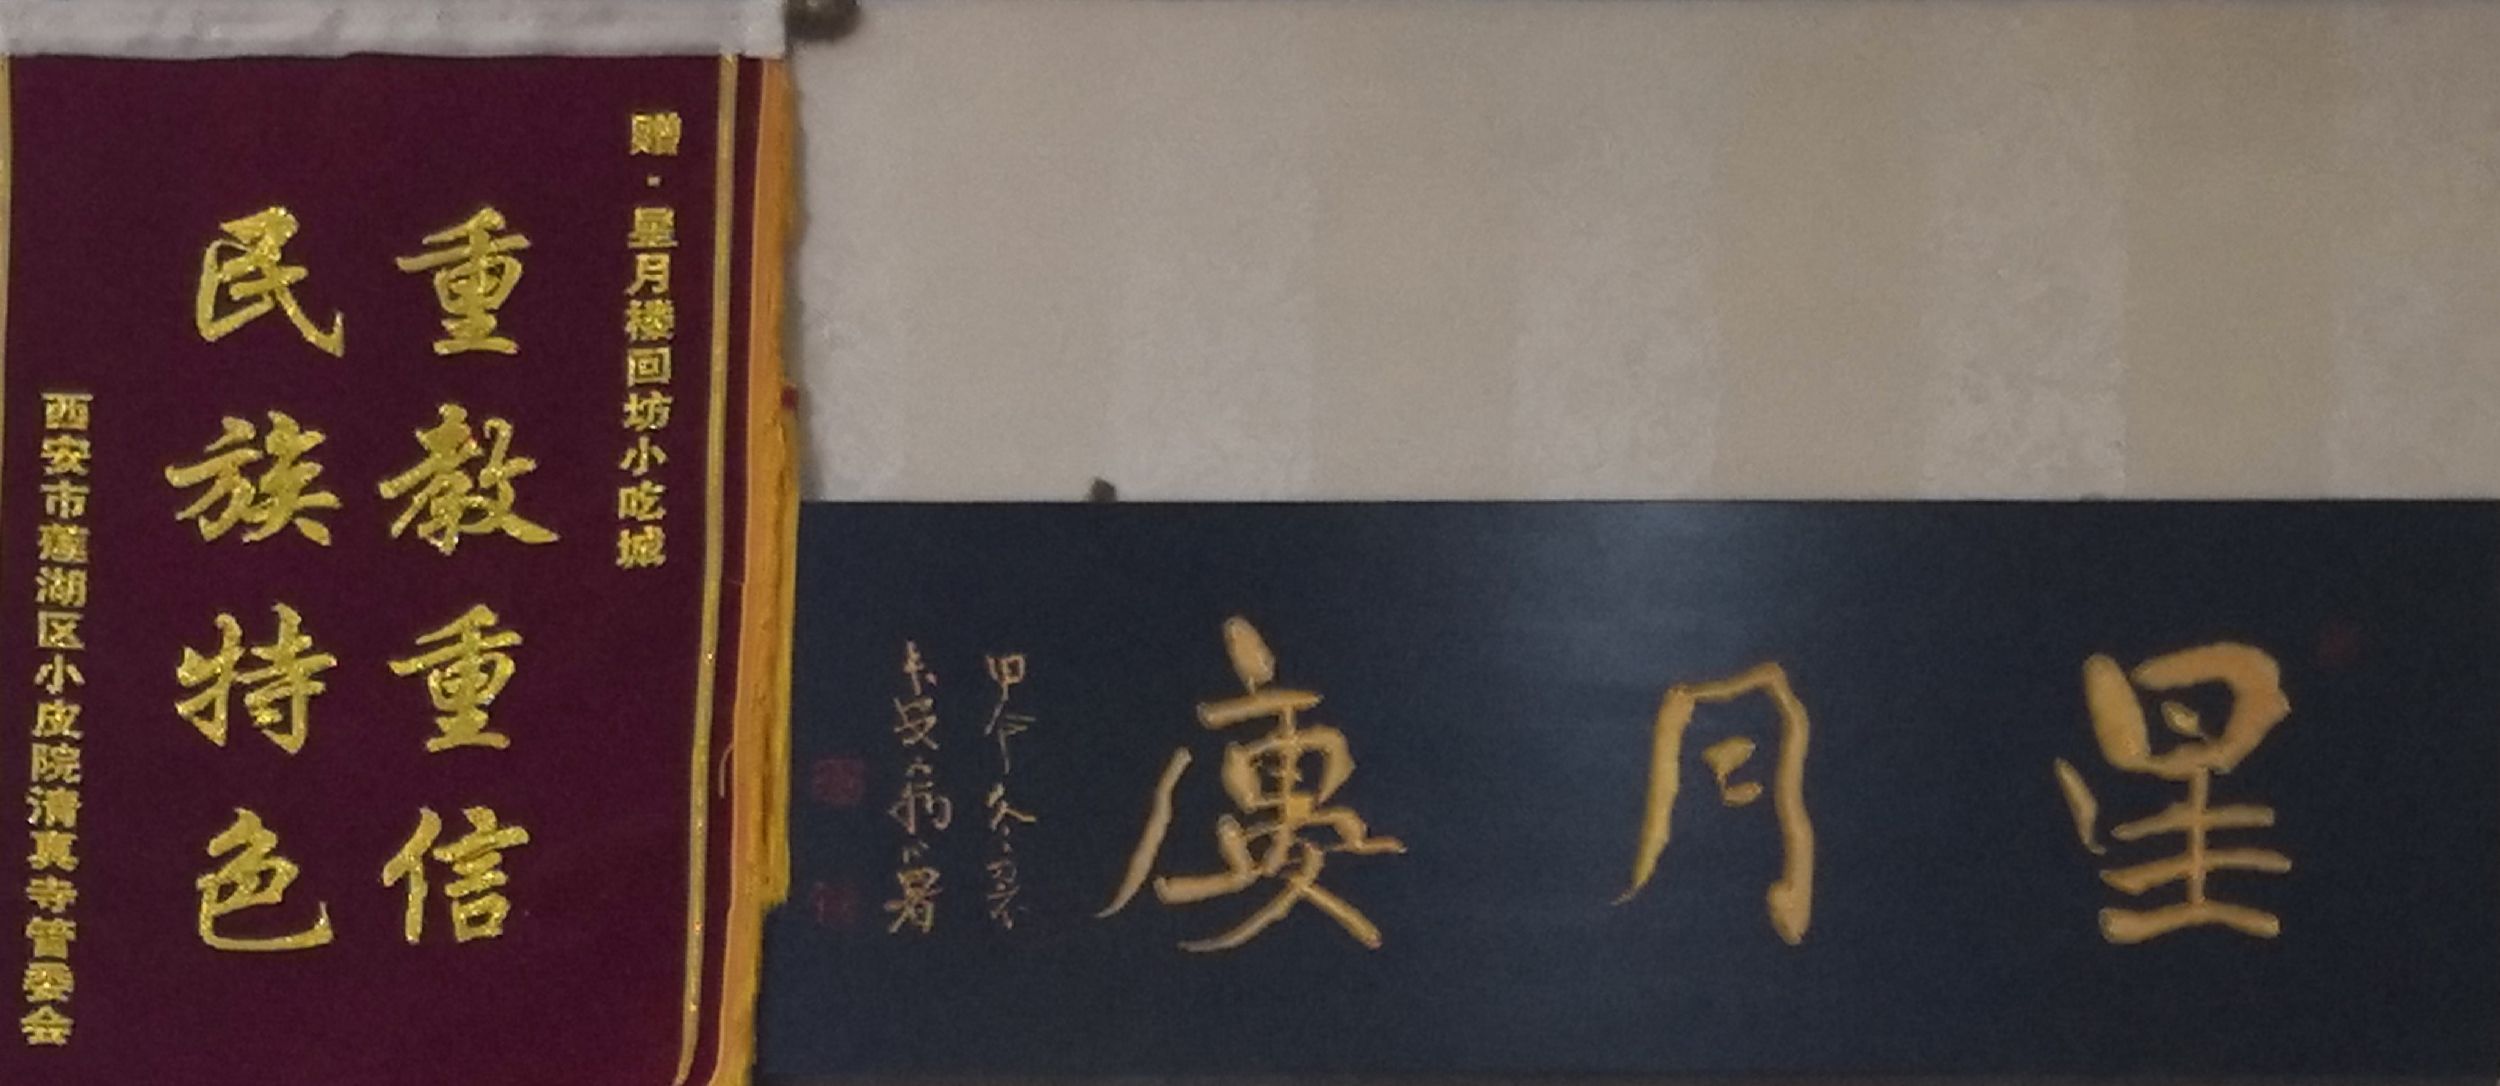 赠·星月楼回坊小吃城
重教重信
民族特色
西安市莲湖区小皮院清真寺管委会
星月廔
甲午冬月